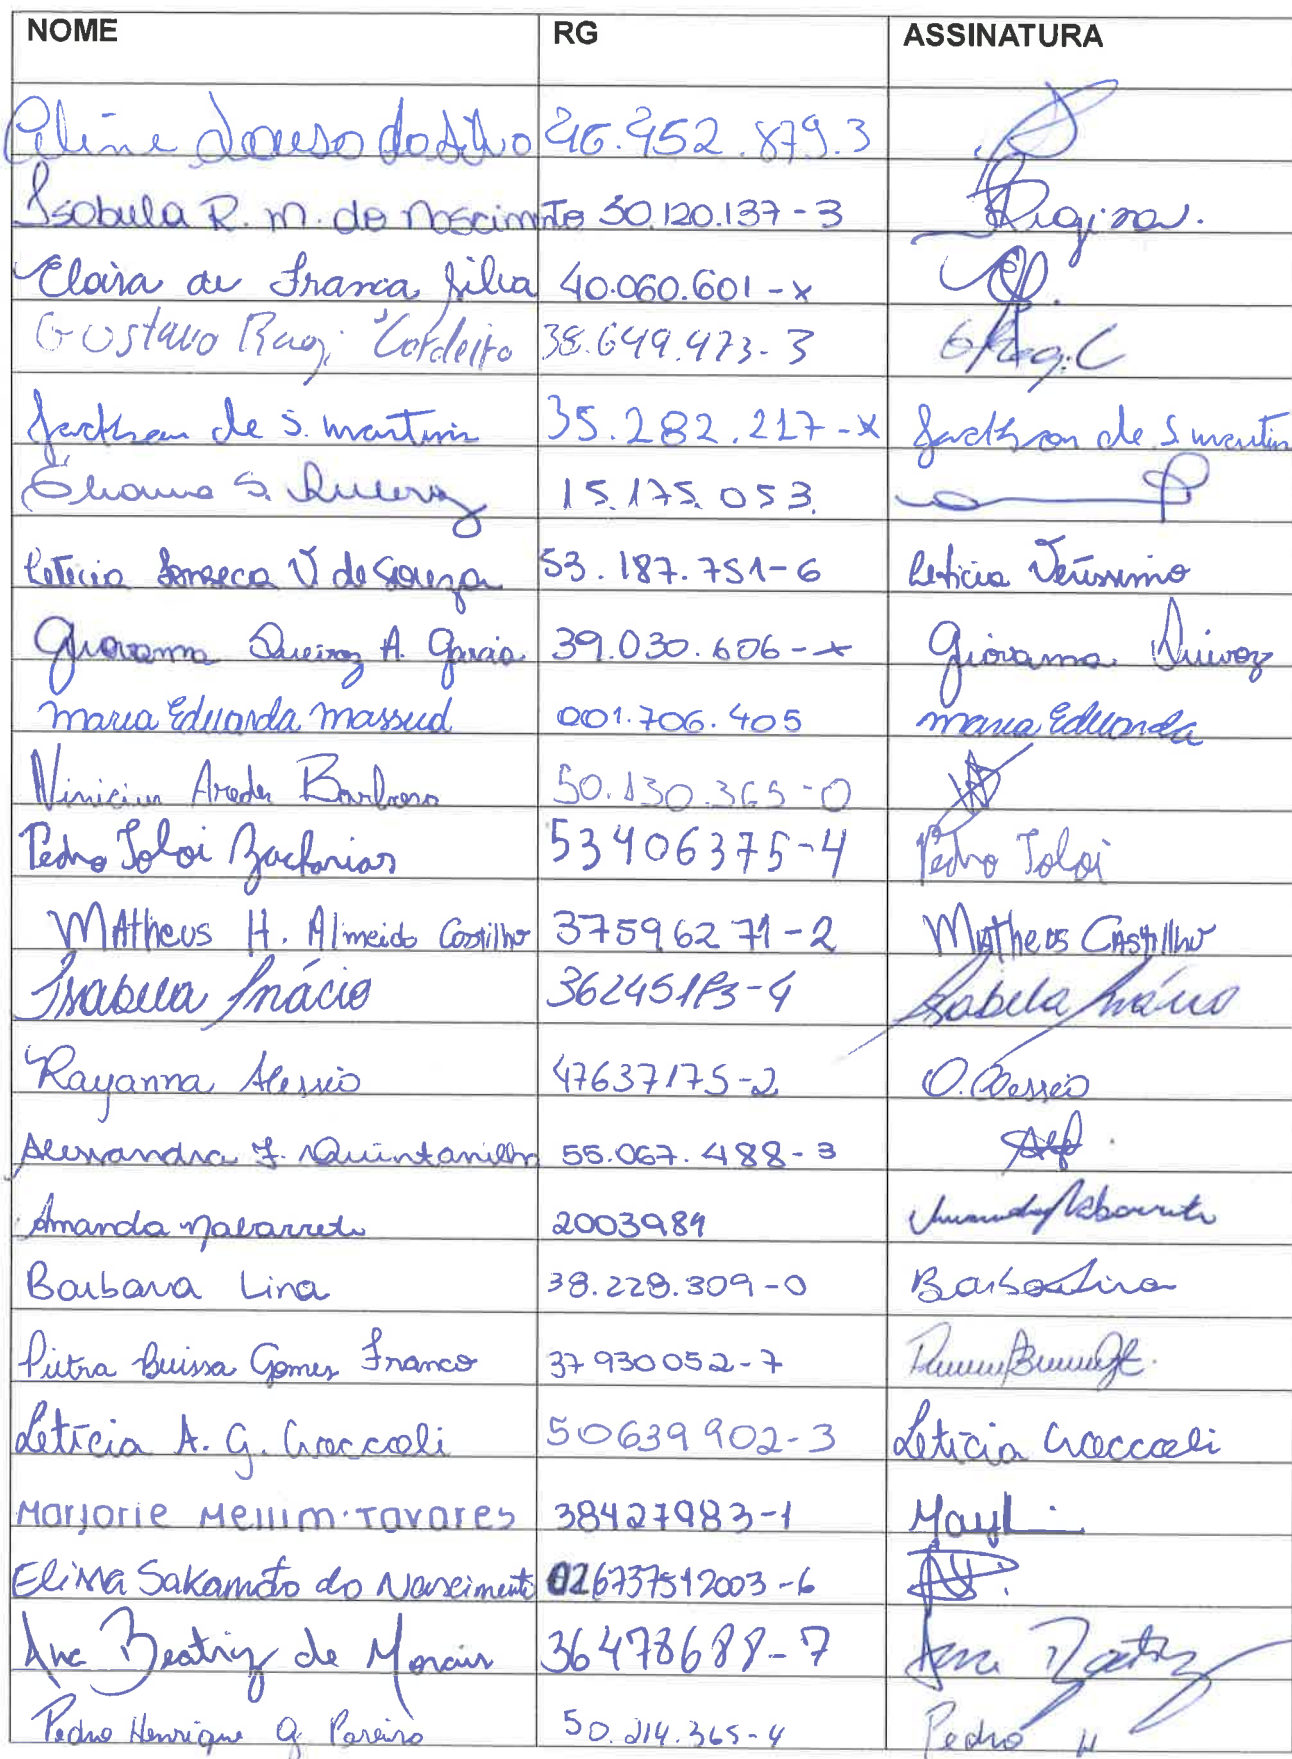 NOME RG ASSINATURA
46.952.879.3
Isabela R. M. do Nascimento 50.120.137-3 Regina.
de Franca Silva 40.060.601-x
Gustavo Ragi Cordeiro 38.649.473-3 G Rag.C
Jackson de S. Martins 35.282.217-x Jackson de S. Martins
Eliana S. Queiroz 15.175.053.
Leticia Fonseca V. de Souza 53.187.751-6 Leticia Veríssimo
Giovanna Queiroz A. Garcia 39.030.606-x Giovanna Queiroz
Maria Eduarda Massud 001.706.405 Maria Eduarda
Vinicius Barbosa 50.130.365-0
Pedro Toloi Zacharias 53406375-4 Pedro Toloi
Matheus H. Almeida Castilho 37596271-2 Matheus Castilho
Isabela Inácio Isabela Inácio
Rayanna Alessio 47637175-2 Alessio
Alessandra F. Quintanilha 55.067.488-3
Amanda Nabarrete 2003989
Barbara Lina 38.228.309-0 Barbara Lina
Pietra Buissa Gomes Franco 37930052-7
Letícia A. G. Craccoli 50639902-3 Letícia Craccoli
Marjorie Mellim Tavares 38427983-1
Elissa Sakamoto do Nascimento 026737512003-6
Ana Beatriz de Morais 36478688-7 Ana Beatriz
Pedro Henrique G. Pereira 50.214.365-4 Pedro H